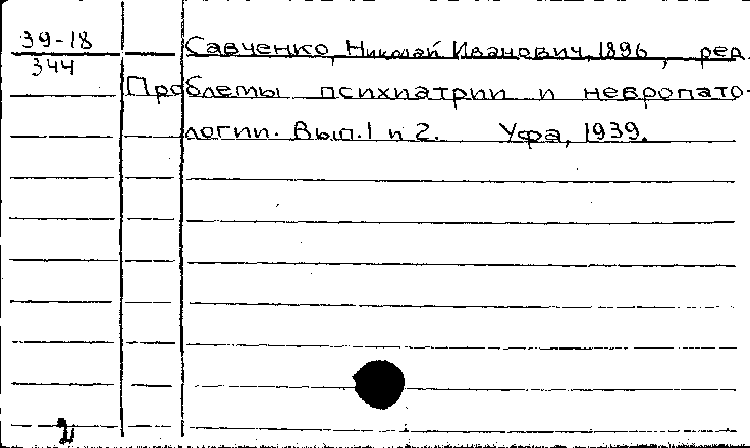 39-18
344
Савченко, Николай Иванович, 1896, ред.
Проблемы психиатрии и невропато-
логии. Вып. 1 и 2. Уфа, 1939.